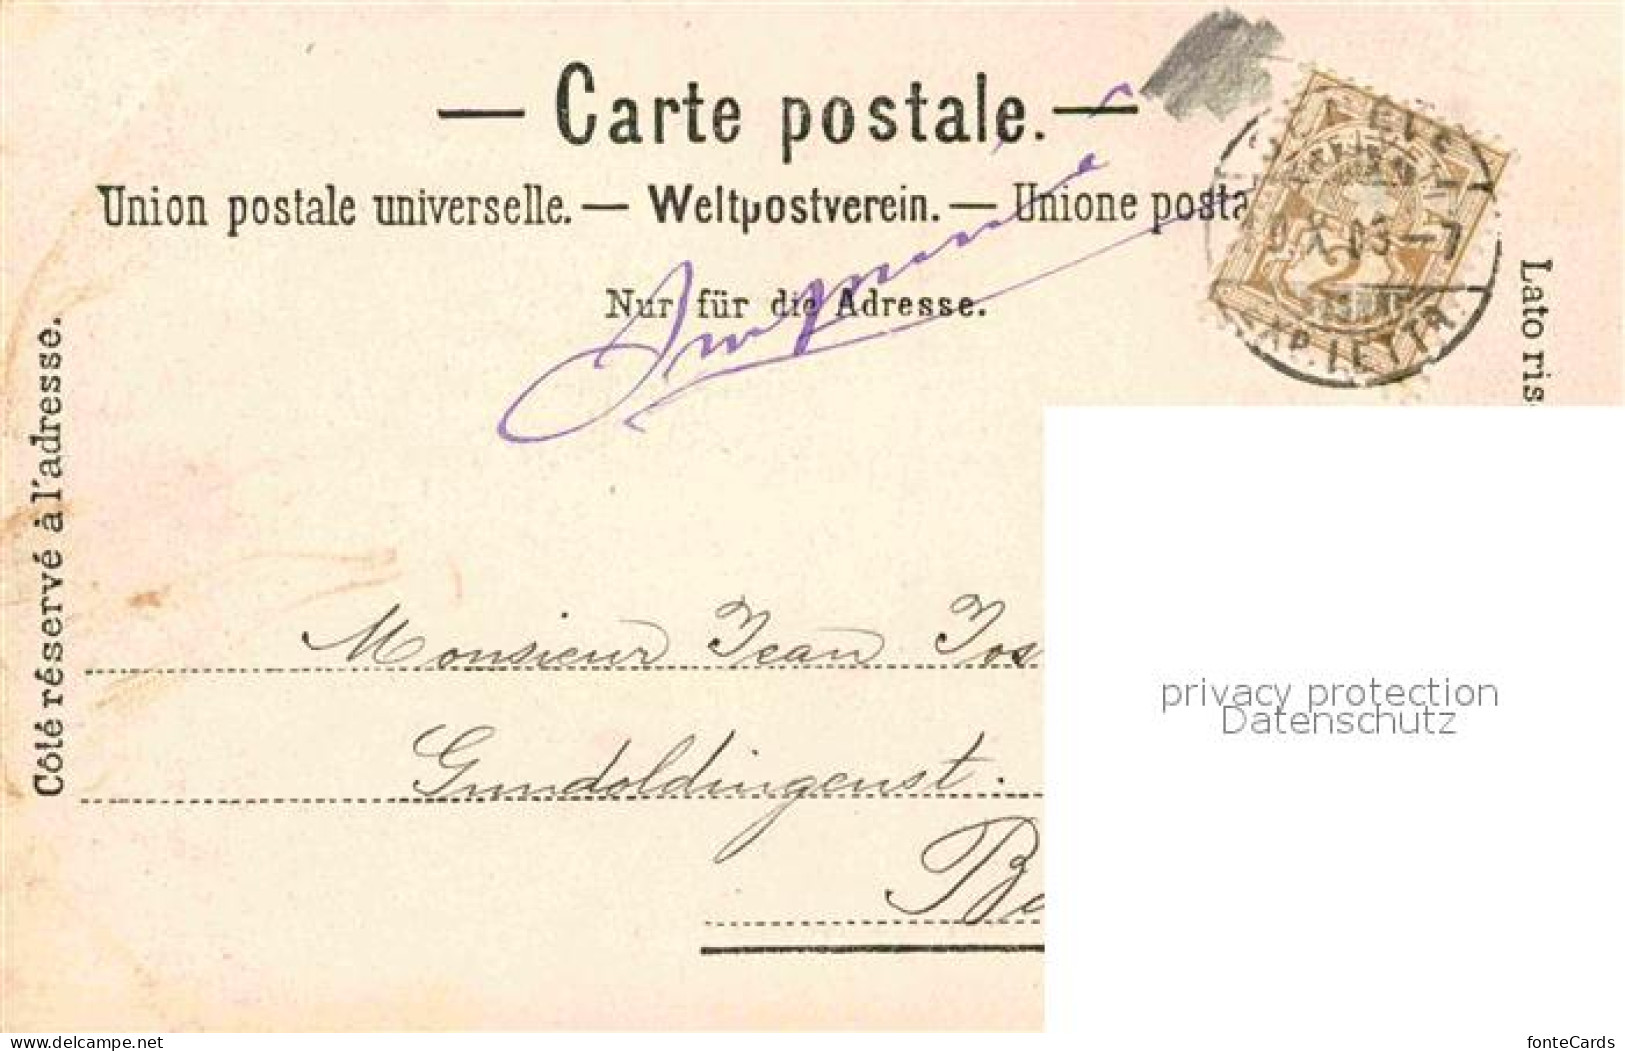 — Carte postale. —
Union postale universelle. — Weltpostverein. — Unione posta
Nur für die Adresse.
Côté réservé à l'adresse.
Lato ris
Imprimé
2
X.03–7
EXP. LETTR.
Monsieur Jean Jos
Gundoldingenst.
Ba
privacy protection
Datenschutz
www.delcampe.net
fonteCards